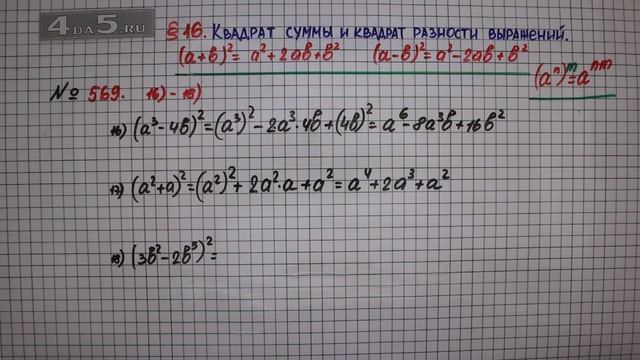 4DA5.RU
§16. Квадрат суммы и квадрат разности выражений.
(a+b)² = a²+2ab+b² (a-b)² = a²-2ab+b²
(aⁿ)ᵐ=aⁿ·ᵐ
№ 569. 16)-18)
16) (a³-4b)²=(a³)²-2a³·4b+(4b)²=a⁶-8a³b+16b²
17) (a²+a)²=(a²)²+2a²·a+a²=a⁴+2a³+a²
18) (3b²-2b⁵)²=